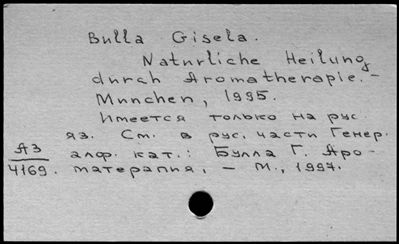 Bulla Gisela.
Naturliche Heilung
durch Aromatherapie. -
Munchen, 1995.
Имеется только на рус.
яз. См. в рус. части Генер.
А3 алф. кат.: Булла Г. Аро-
4169. матерапия, - М., 1997.